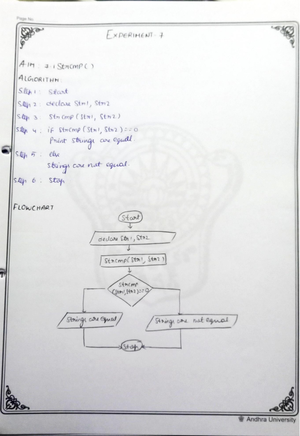 Page No.
EXPERIMENT-7
AIM : 7.1 Strcmp( )
ALGORITHM
Step 1 : Start
Step 2 : declare Str1, Str2
Step 3 : Strcmp (Str1, Str2)
Step 4 : if Strcmp (Str1, Str2) == 0
Print strings are equal.
Step 5 : else
Strings are not equal.
Step 6 : Stop
FLOWCHART
Start
declare Str1, Str2
Strcmp (Str1, Str2)
Strcmp
(Str1, Str2)==0
Strings are equal
Strings are not equal
Stop
Andhra University